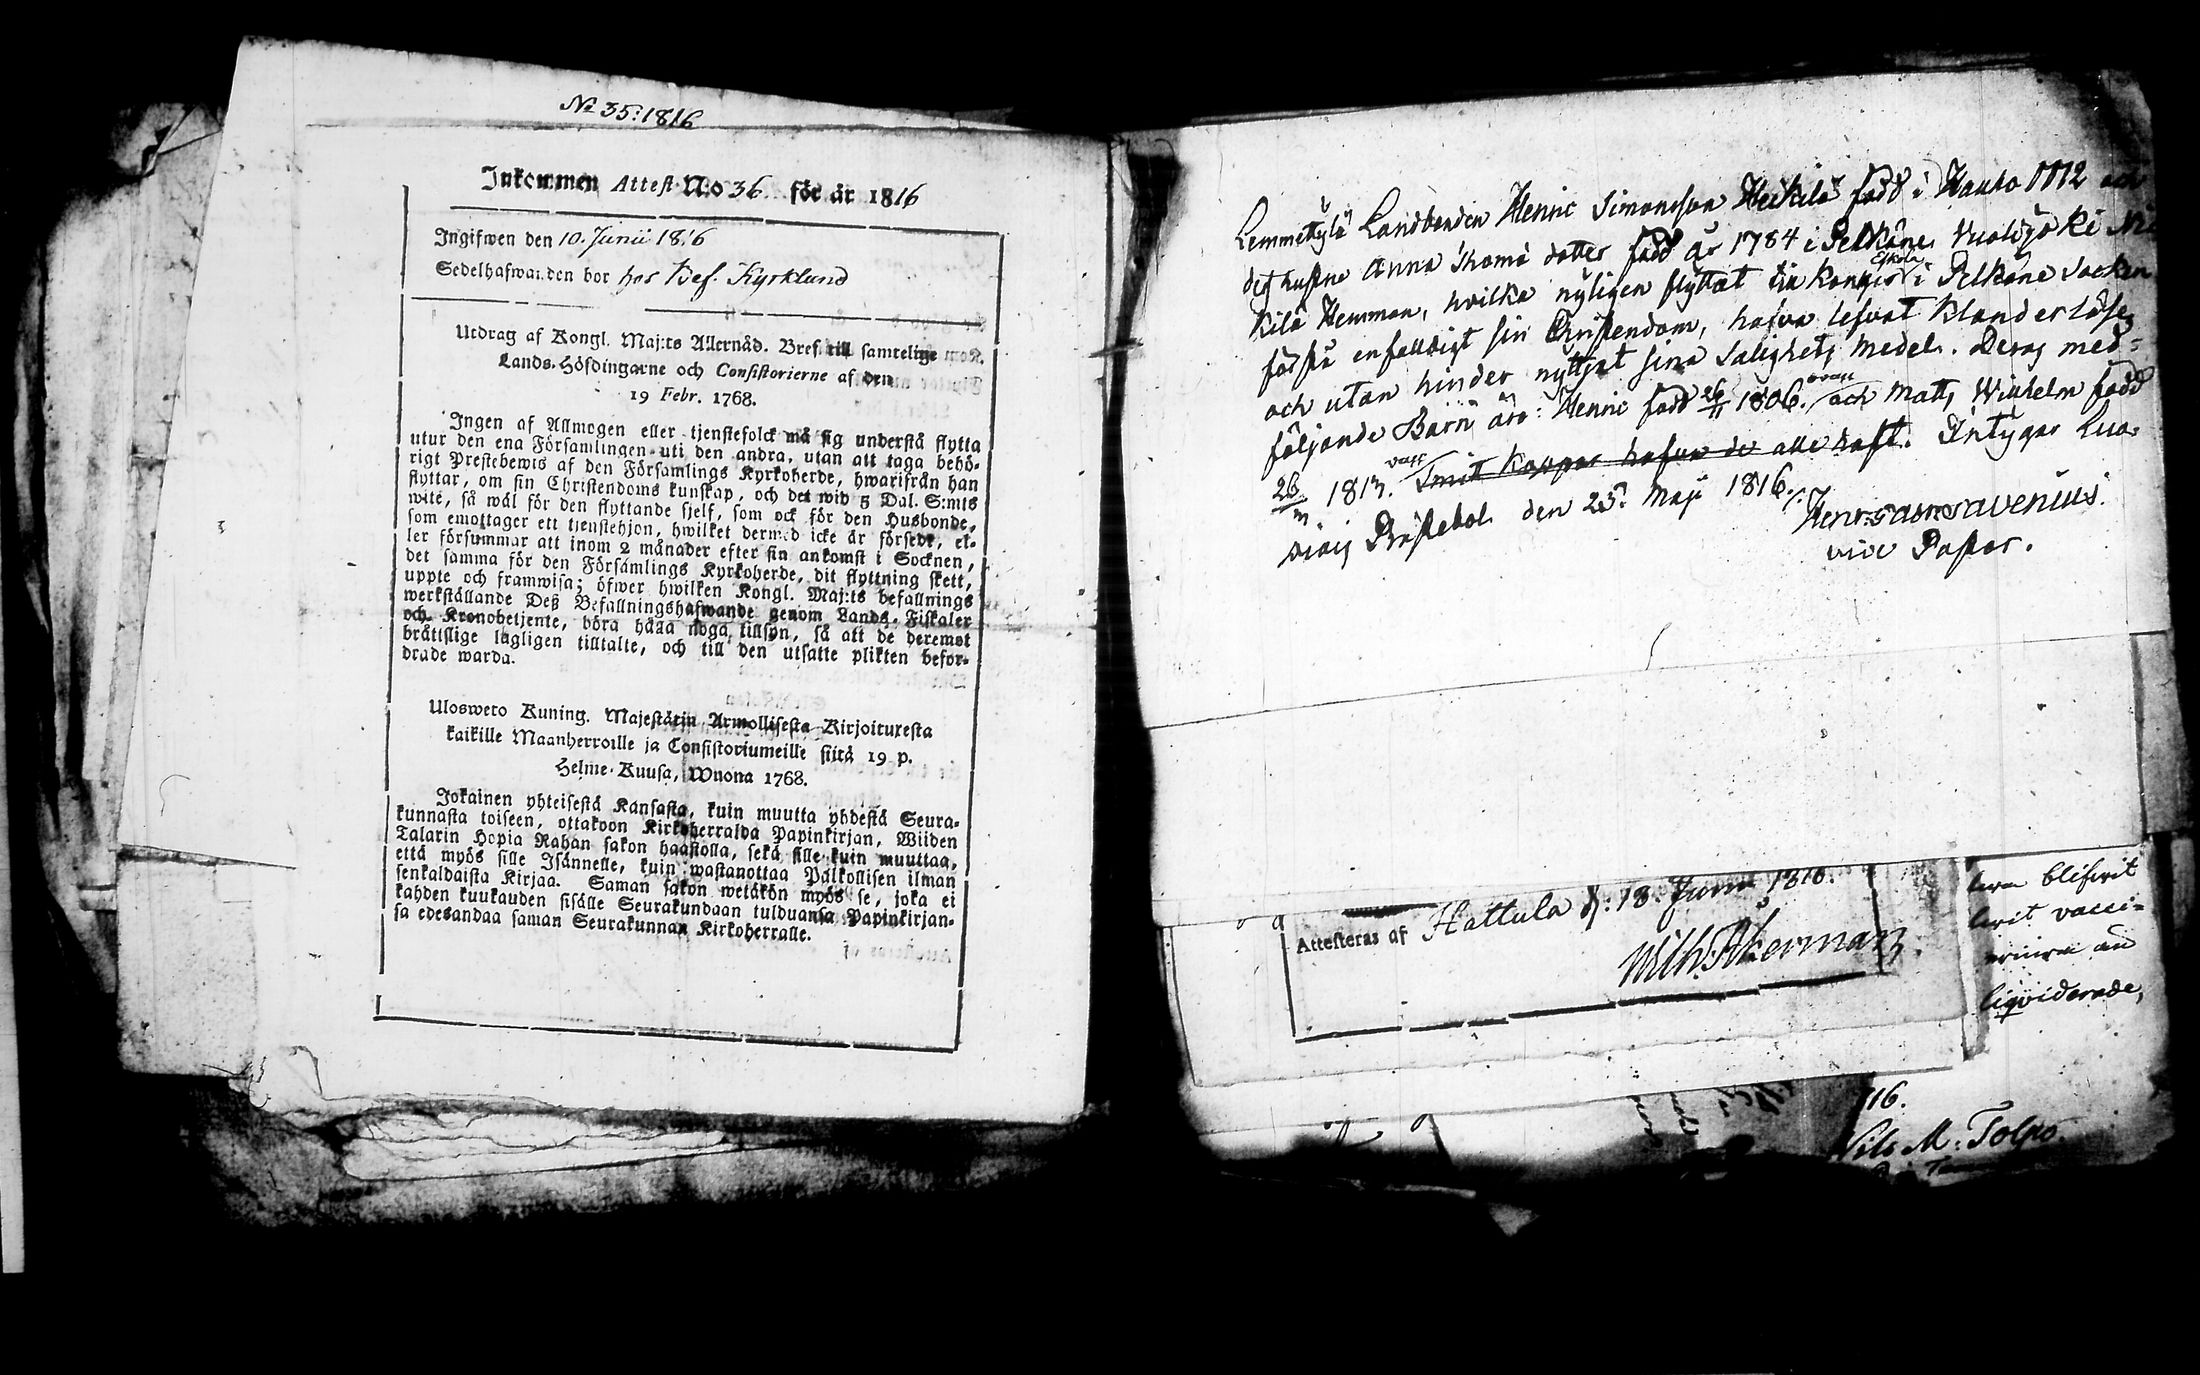 No 35:1816
Inkommen Attest N:o 36 för år 1816
Ingifwen den 10. Junii 1816
Sedelhafwanden bor hos Bef. Kyrklund
Utdrag af Kongl. Maj:ts Allernåd. Bref till samtelige
Lands-Höfdingarne och Consistorierne af den
19 Febr. 1768.
Ingen af Allmogen eller tjenstefolck må sig understå flytta
utur den ena Församlingen uti den andra, utan att taga behö-
rigt Prestebewis af den Församlings Kyrkoherde, hwarifrån han
flyttar, om sin Christendoms kunskap, och det wid 5 Dal. S:mts
wite, så wäl för den flyttande sjelf, som ock för den Husbonde,
som emottager ett tjenstehjon, hwilket dermed icke är försedt, el-
ler försummar att inom 2 månader efter sin ankomst i Socknen,
det samma för den Församlings Kyrkoherde, dit flyttning skett,
uppte och framwisa; öfwer hwilken Kongl. Maj:ts befallnings
werkställande Deß Befallningshafwande genom Lands-Fiskaler
och Kronobetjente, böra hafa noga tillsyn, så att de deremot
bråttslige lagligen tilltalte, och till den utsatte plikten befor-
drade warda.
Ulosweto Kuning. Majestätin Armollisesta Kirjoituxesta
kaikille Maanherroille ja Consistoriumeille siitä 19 p.
Helme-Kuusa, Wuona 1768.
Jokainen yhteisestä Kansasta, kuin muutta yhdestä Seura-
kunnasta toiseen, ottakoon Kirkoherralda Papinkirjan, Wiiden
Talarin Hopia Rahan sakon haastolla, sekä sille kuin muuttaa,
että myös sille Isännelle, kuin wastanottaa Palkollisen ilman
senkaldaista Kirjaa. Saman sakon wetäkön myös se, joka ei
kahden kuukauden sisälle Seurakundaan tulduansa Papinkirjan-
sa edesandaa saman Seurakunnan Kirkoherralle.
Lemmettylä Landbonden Henric Simonsson Heikilä född i Hauho 1772 och
dess hustru Anna Thomä dotter född år 1784 i Pelkäne Vuolijoki
kilä Hemman, hvilka nyligen flyttat till Kangis Eskola i Pelkäne Socken
förstå enfaldigt sin Christendom, hafva lefvat Klanderlöse
och utan hinder nyttjat sina Salighets medel. Deras med-
följande Barn äro: Henric född 26/11 1806. vacc och Matts Wilhelm född
26/m. 1813. vacc Smitt Koppor hafva de alle haft. Intygar Luo-
Prästebol den 25 Maji 1816.
Henr: Sam: Savenius.
vice Pastor.
Attesteras af Hattula d: 18. Junii 1816.
Wilh: Åkerman
blifvit
vacci-
liqviderade,
16.
Nils M: Tolpo.